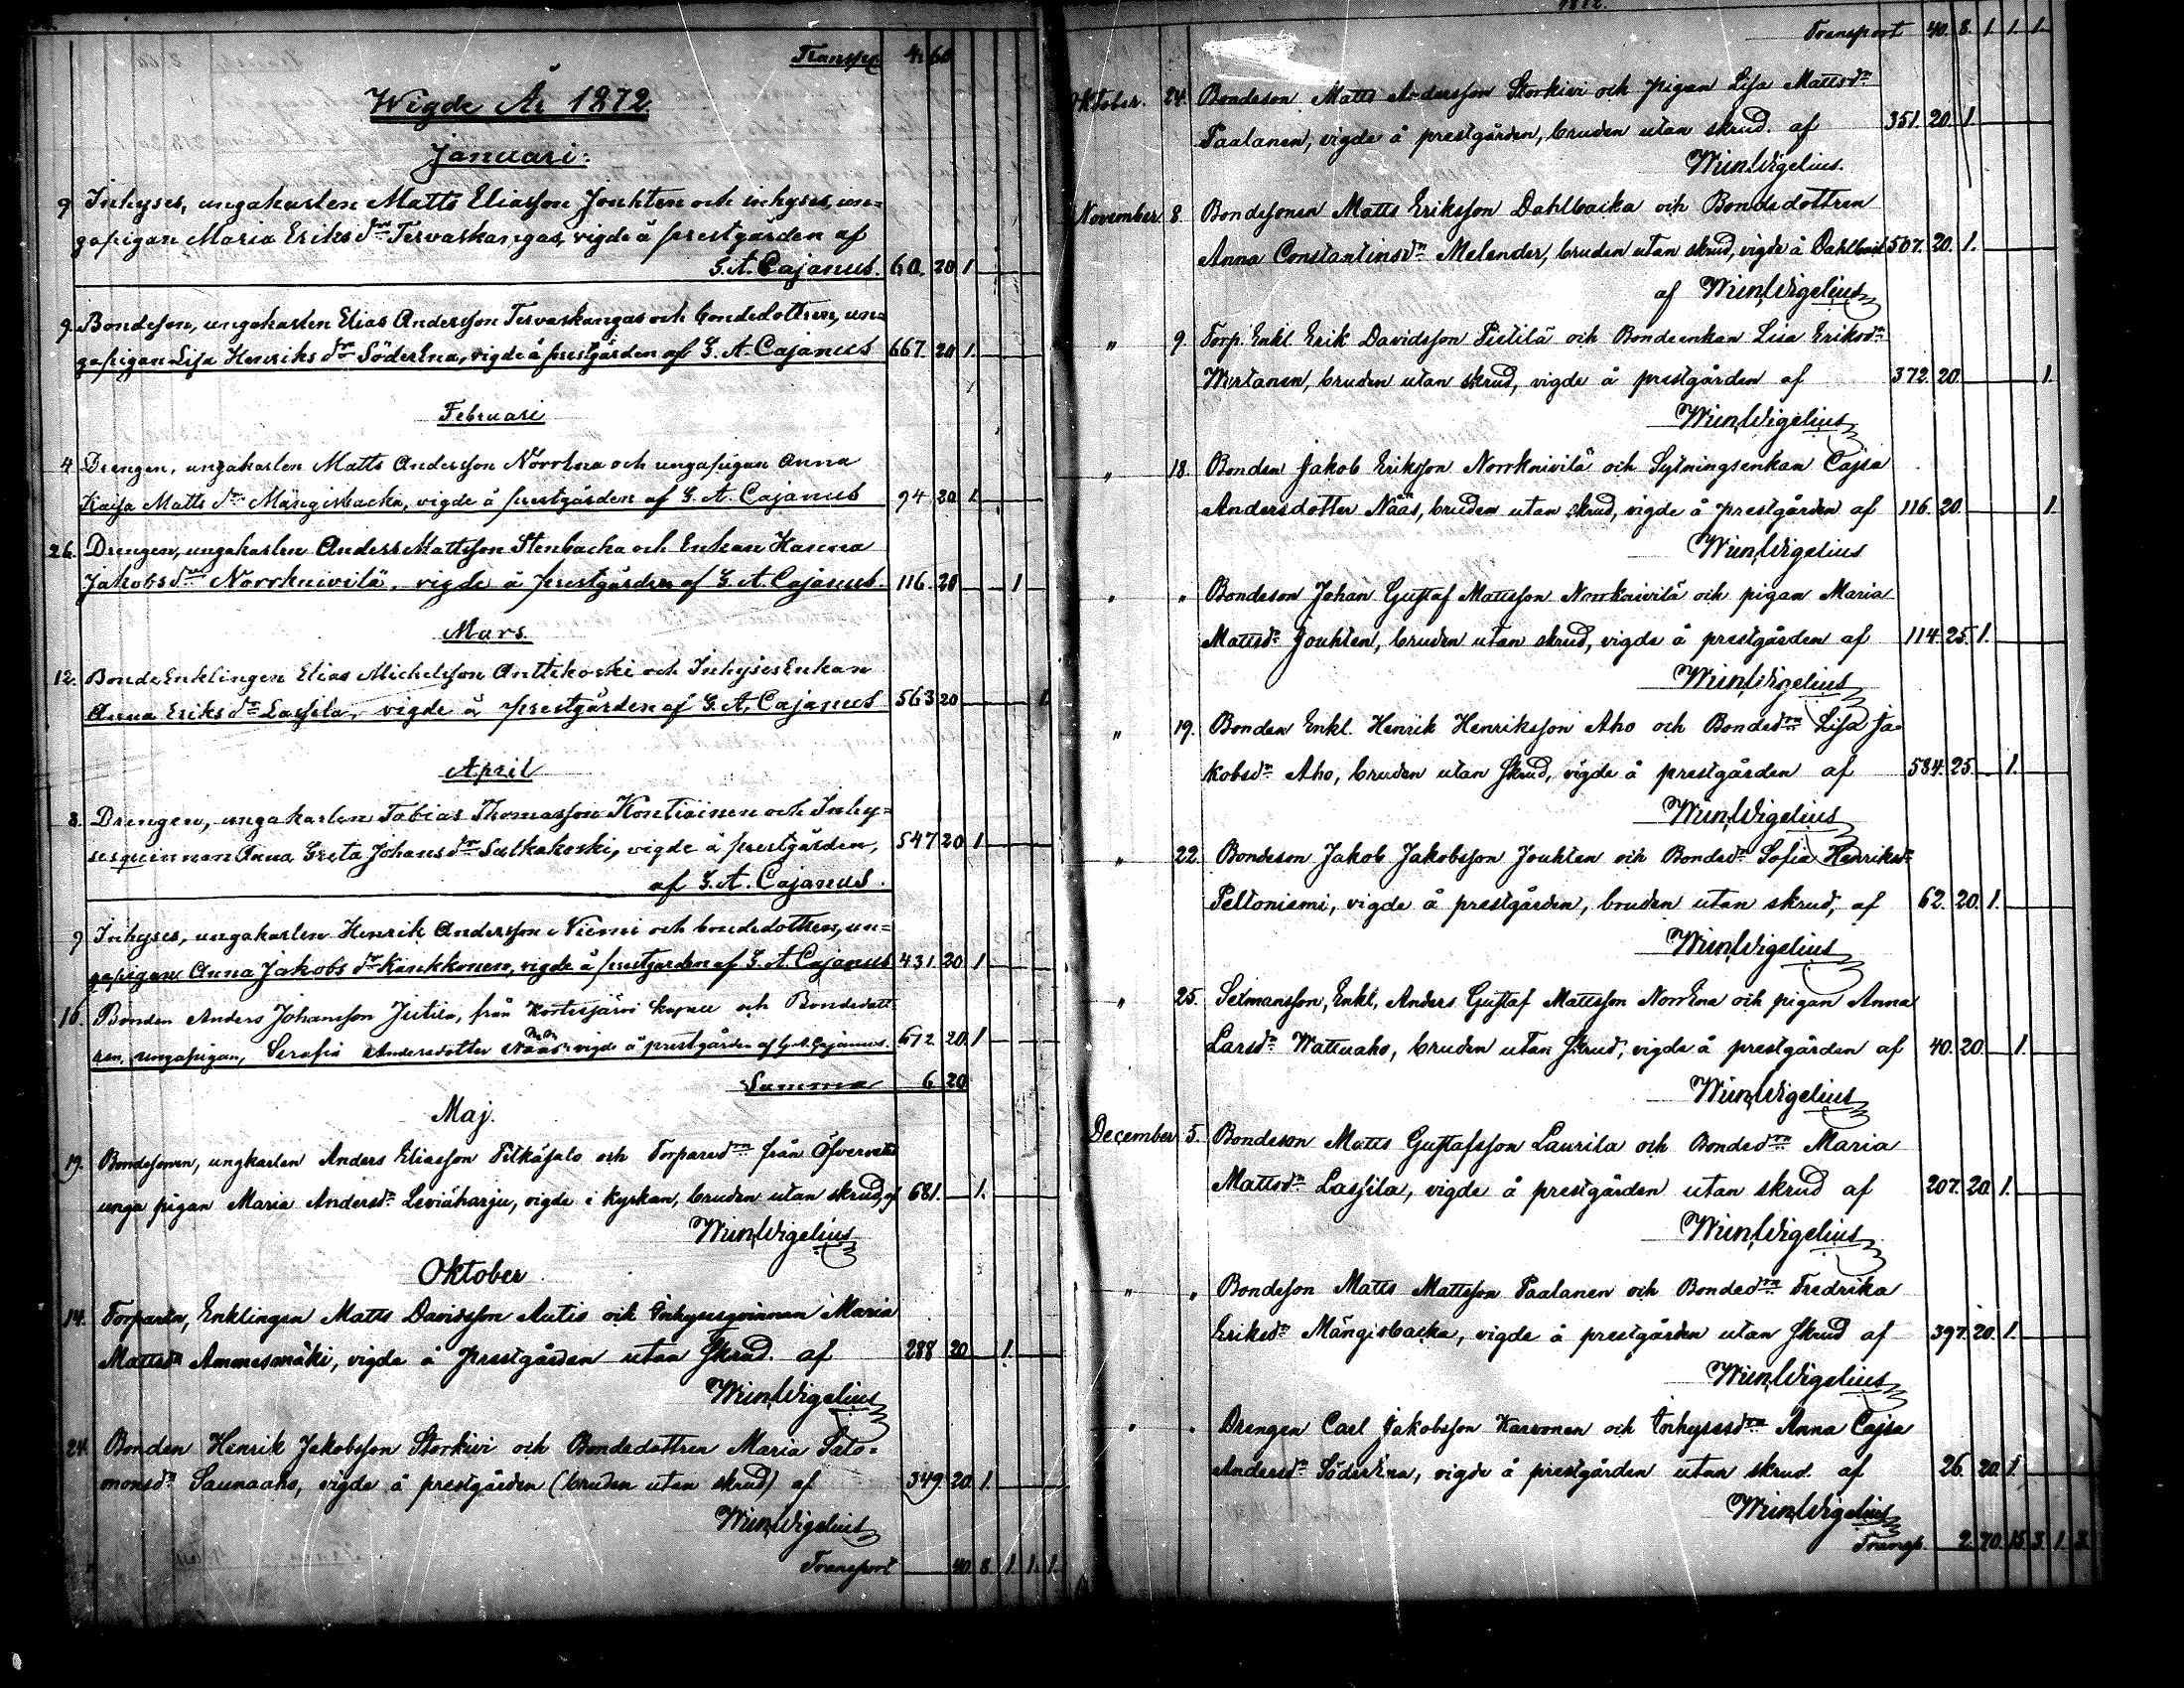 Transp. 4. 60
Wigde År 1872
Januari:
9 Inhyses, ungakarlen Matts Eliasson Jouhten och inhyses, un=
gapigan Maria Eriks dr Tervaskangas, vigde å prestgården af
G. A. Cajanus. 60. 20 1
9. Bondeson, ungakarlen Elias Andersson Tervaskangas och bondedottren, un=
gapigan Lisa Henriks dr SöderEna, vigde å prestgården af G. A. Cajanus 667 20 1.
Februari
4 Drengen, ungakarlen Matts Andersson NorrEna och ungapigan Anna
Kaisa Matts dr Mängisbacka, vigde å prestgården af G. A. Cajanus 94 20 1
26. Drengen, ungakarlen Anders Mattsson Stenbacka och Enkan Hanna
Jakobs dr Norrknivilä, vigde å prestgården af G. A. Cajanus. 116. 20 1
Mars.
12. BondeEnklingen Elias Michelsson Anttikoski och InhysesEnkan
Anna Eriks dr Lassila, vigde å prestgården af G. A. Cajanus 563 20 1.
April
8. Drengen, ungakarlen Tobias Thomasson Kontiainen och Inhy=
sesqvinnan Anna Greta Johans dr Sulkakoski, vigde å prestgården, 547 20 1
af G. A. Cajanus.
9 Inhyses, ungakarlen Henrik Andersson Niemi och bondedottren, un=
gapigan Anna Jakobs dr Känkkönen, vigde å prestgården af G. A. Cajanus 431 20 1
16. Bonden Anders Johansson Jutila, från Kortesjärvi kapell och Bondedott
ren, ungapigan, Serafia Andersdotter Nääs, vigde å prestgården af G. A. Cajanus. 612 20 1
Summa 6 20
Maj.
19. Bondesonen, ungkarlen Anders Eliasson Pitkäsalo och Torparedrn från Öfvervetil
unga pigan Maria Andersdr Leviäharju, vigde i kyrkan, bruden utan skrud, af 681. 1.
Wm Wigelius
Oktober
14. Torparen, Enklingen Matts Davidsson Autio och Inhysesqvinnan Maria
Mattsdr Ammesmäki, vigde å prestgården utan skrud. af 288 20 1.
Wm Wigelius
24. Bonden Henrik Jakobsson Storkivi och Bondedottren Maria Salo=
monsdr Saunaaho, vigde å prestgården (bruden utan skrud) af 349. 20. 1.
Wm Wigelius
Transport 40. 8. 1. 1. 1.
1872.
Transport 40. 8. 1. 1. 1.
Oktober. 24. Bondeson Matts Andersson Storkivi och pigan Lisa Mattsdr
Paalanen, vigde å prestgården, bruden utan skrud. af 351. 20. 1.
Wm Wigelius.
November. 8. Bondesonen Matts Eriksson Dahlbacka och Bondedottren
Anna Constantinsdr Melender, bruden utan skrud, vigde å Dahlback 507. 20. 1.
af Wm Wigelius
" 9. Torp. Enkl. Erik Davidsson Pietilä och Bondeenkan Lisa Eriksdr
Wirtanen, bruden utan skrud, vigde å prestgården af 372. 20. 1.
Wm Wigelius
" 18. Bonden Jakob Eriksson Norrknivilä och Sytningsenkan Cajsa
Andersdotter Nääs, bruden utan skrud, vigde å prestgården af 116. 20. 1.
Wm Wigelius
" " Bondeson Johan Gustaf Mattsson Norrknivilä och pigan Maria
Mattsdr Jouhten, bruden utan skrud, vigde å prestgården af 114. 25. 1.
Wm Wigelius
" 19. Bonden Enkl. Henrik Henriksson Aho och Bondedrn Lisa Ja=
kobsdr Aho, bruden utan skrud, vigde å prestgården af 584. 25. 1.
Wm Wigelius
" 22. Bondeson Jakob Jakobsson Jouhten och Bondedr Sofia Henriksdr
Peltoniemi, vigde å prestgården, bruden utan skrud, af 62. 20. 1.
Wm Wigelius
" 25. Sexmansson, Enkl, Anders Gustaf Mattsson NorrEna och pigan Anna
Larsdr Wattuaho, bruden utan skrud, vigde å prestgården af 40. 20. 1.
Wm Wigelius
December 5. Bondeson Matts Gustafsson Laurila och Bondedrn Maria
Mattsdr Lassila, vigde å prestgården utan skrud af 207. 20. 1.
Wm Wigelius
" " Bondeson Matts Mattsson Paalanen och Bondedrn Fredrika
Eriksdr Mängisbacka, vigde å prestgården utan skrud af 397. 20. 1.
Wm Wigelius
" " Drengen Carl Jakobsson Karvonen och Inhysesdrn Anna Cajsa
Andersdr SöderEna, vigde å prestgården utan skrud. af 26. 20. 1.
Wm Wigelius
Transp. 2. 70. 15. 3. 1. 3.